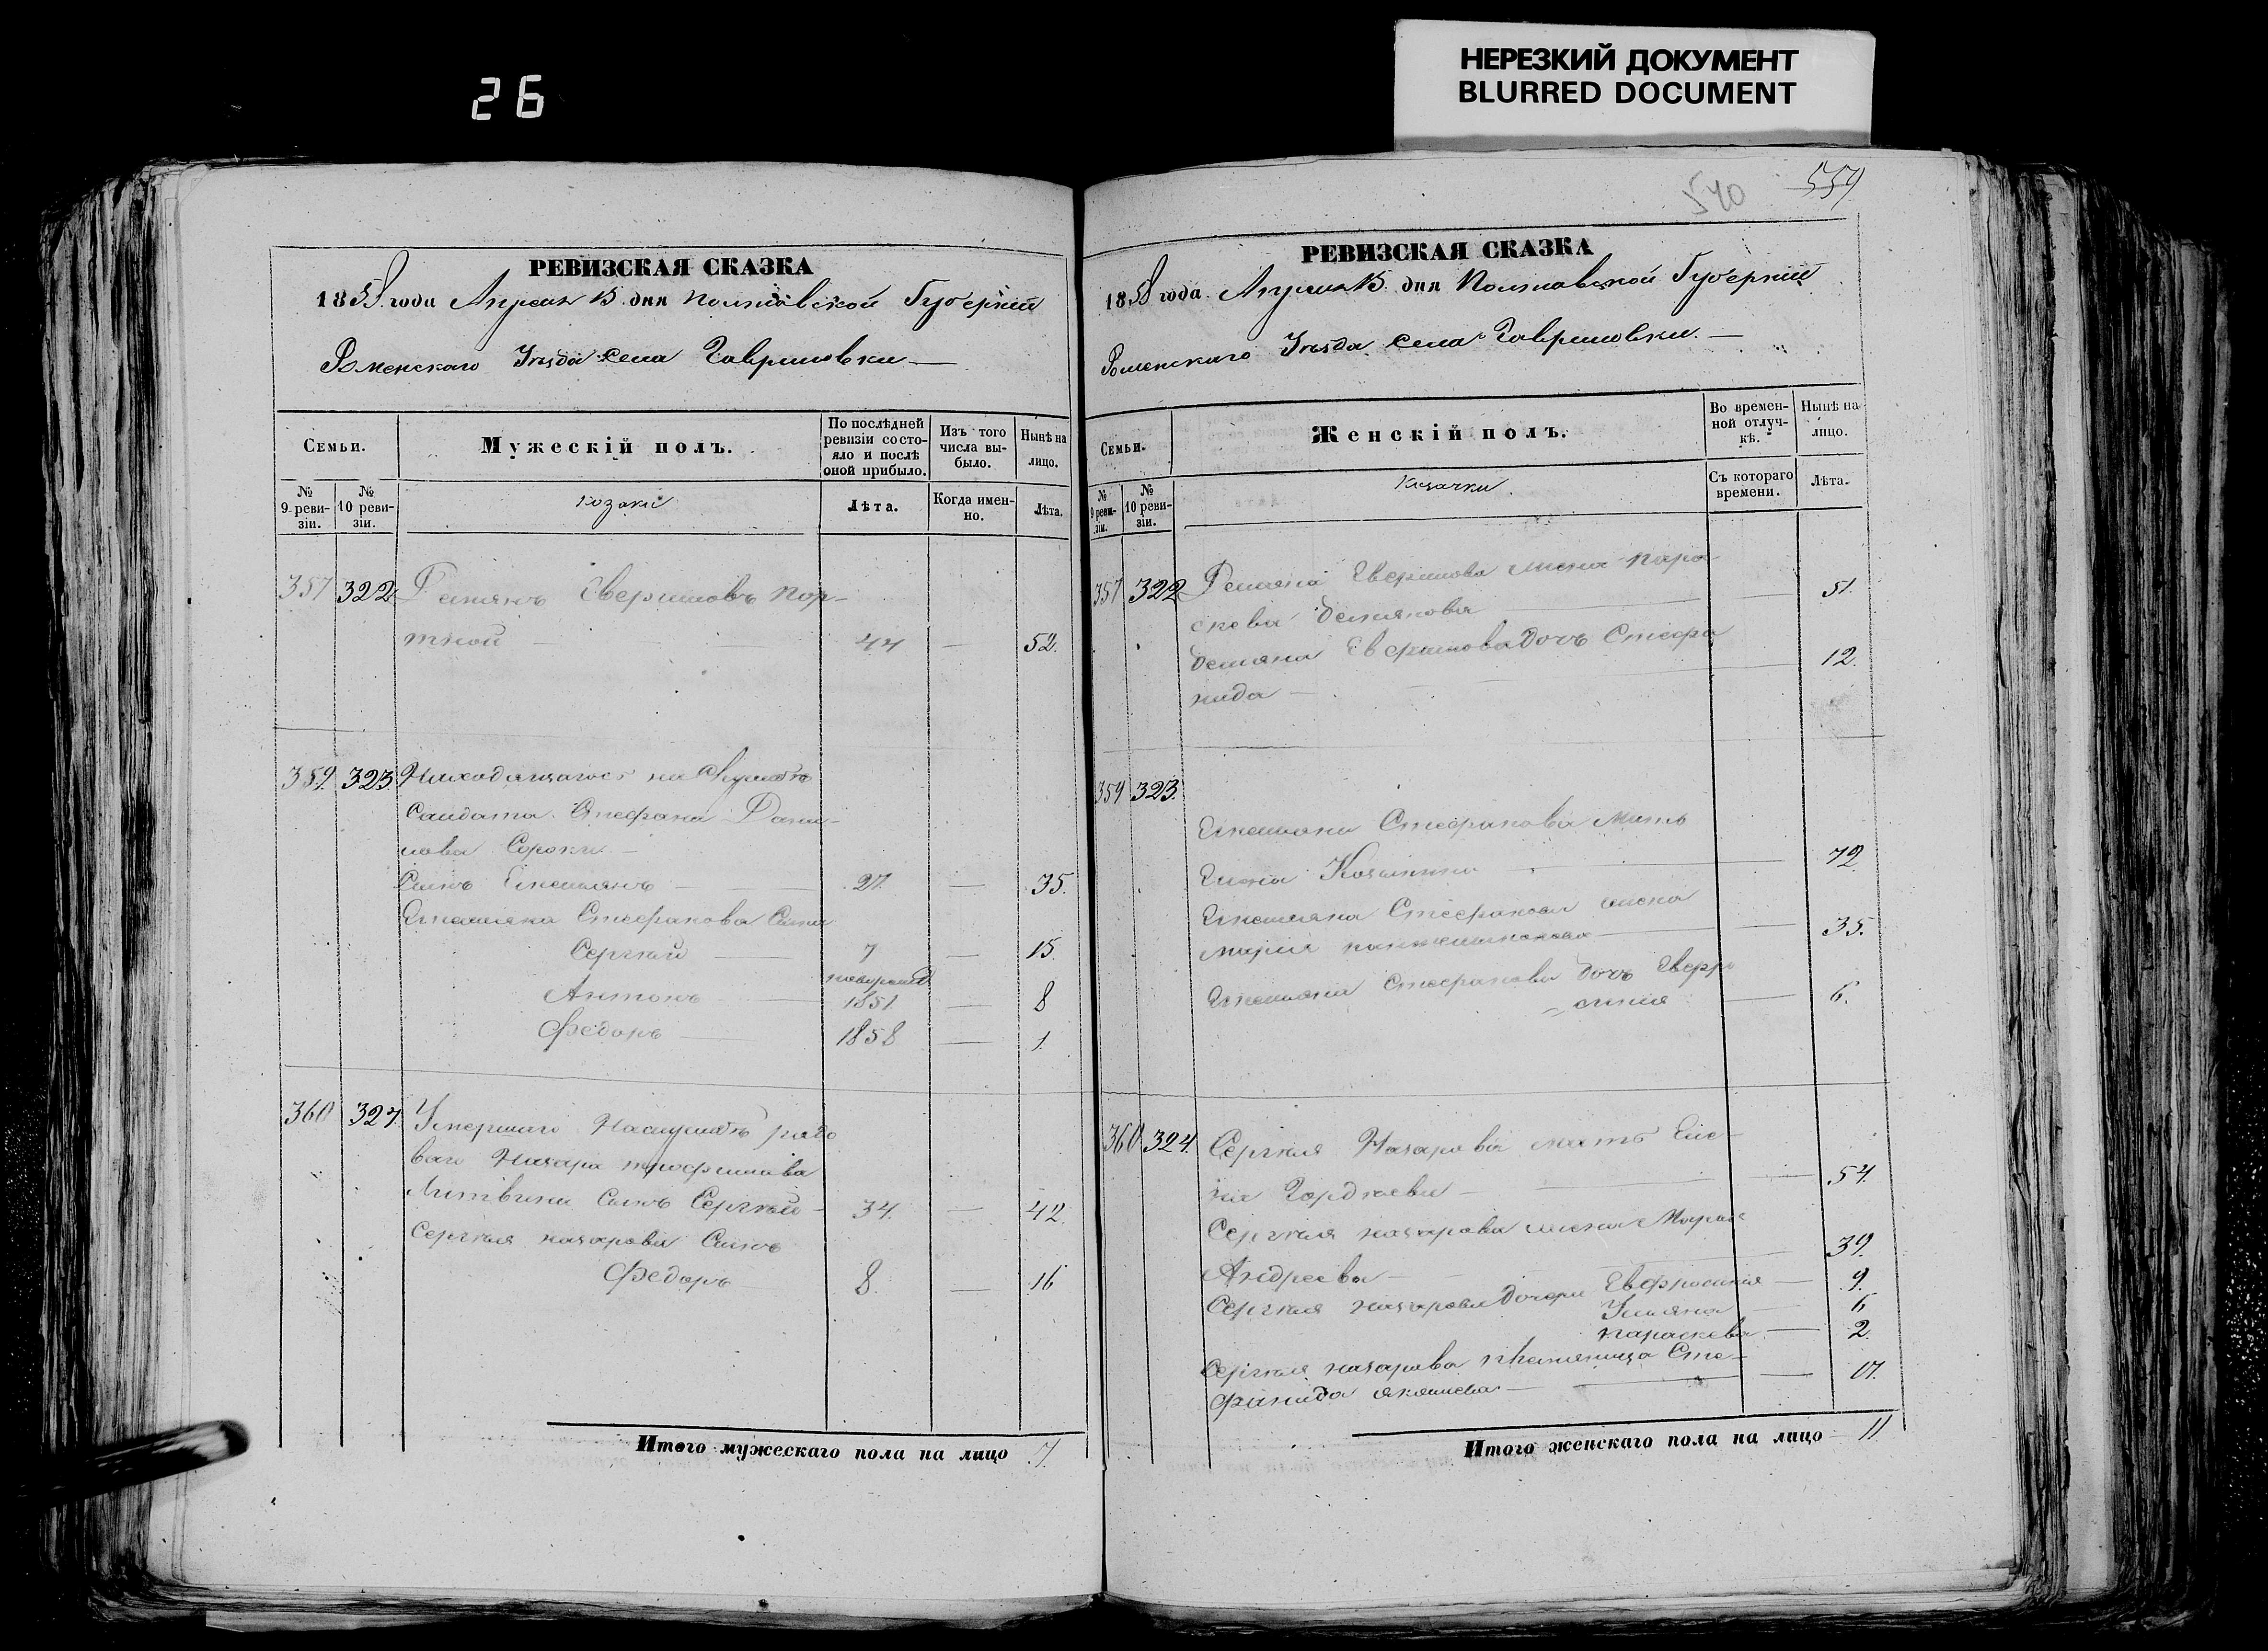 26
НЕРЕЗКИЙ ДОКУМЕНТ
BLURRED DOCUMENT
540
559
РЕВИЗСКАЯ СКАЗКА
1858 года Апреля 15 дня Полтавской Губернии
Роменскаго Уезда Села Гавриловки
Семьи.
Мужескій полъ.
По послѣдней ревизіи состояло и послѣ оной прибыло.
Изъ того числа выбыло.
Нынѣ на лицо.
№ 9 ревизіи.
№ 10 ревизіи.
козаки
Лѣта.
Когда именно.
Лѣта.
357 322 Демянъ Свиридовъ Пор-
тной 44 — 52.
359. 323. Находящагося на службѣ
Солдата Стефана Дани-
лова Сороки
Сынъ Емельянъ 27. — 35.
Емельяна Стефанова Сыны
Сергѣй 7 — 15.
Антонъ 1851 — 8
Федоръ 1858 — 1.
360 324. Умершаго На службѣ рядо
ваго Назара Трофимова
Литвина Сынъ Сергѣй 34. — 42.
Сергѣя Назарова Сынъ
Федоръ 8. — 16
Итого мужескаго пола на лицо 7.
РЕВИЗСКАЯ СКАЗКА
1858 года Апреля 15 дня Полтавской Губернии
Роменскаго Уезда Села Гавриловки.
Семьи.
Женскій полъ.
Во временной отлучкѣ.
Нынѣ на лицо.
№ 9 ревизіи.
№ 10 ревизіи.
Козачки.
Съ котораго времени.
Лѣта.
357 322 Демяна жена Пара
скева Демянова — 51.
Демяна дочь Стефа
нида — 12.
359 323.
Емельяна Стефанова Мать
72.
Емельяна Стефанова жена
Мария — 35.
Емельяна Стефанова дочь Евфро
синия — 6.
360 324. Сергѣя Назарова мать Еле-
на Гордѣева — 54.
Сергѣя Назарова жена Марья
Андреева — 39.
Сергѣя Назарова дочери Евфросиния — 9.
Ульяна — 6
Параскева — 2.
Сергѣя Назарова племяница Сте-
фанида — 17.
Итого женскаго пола на лицо 11